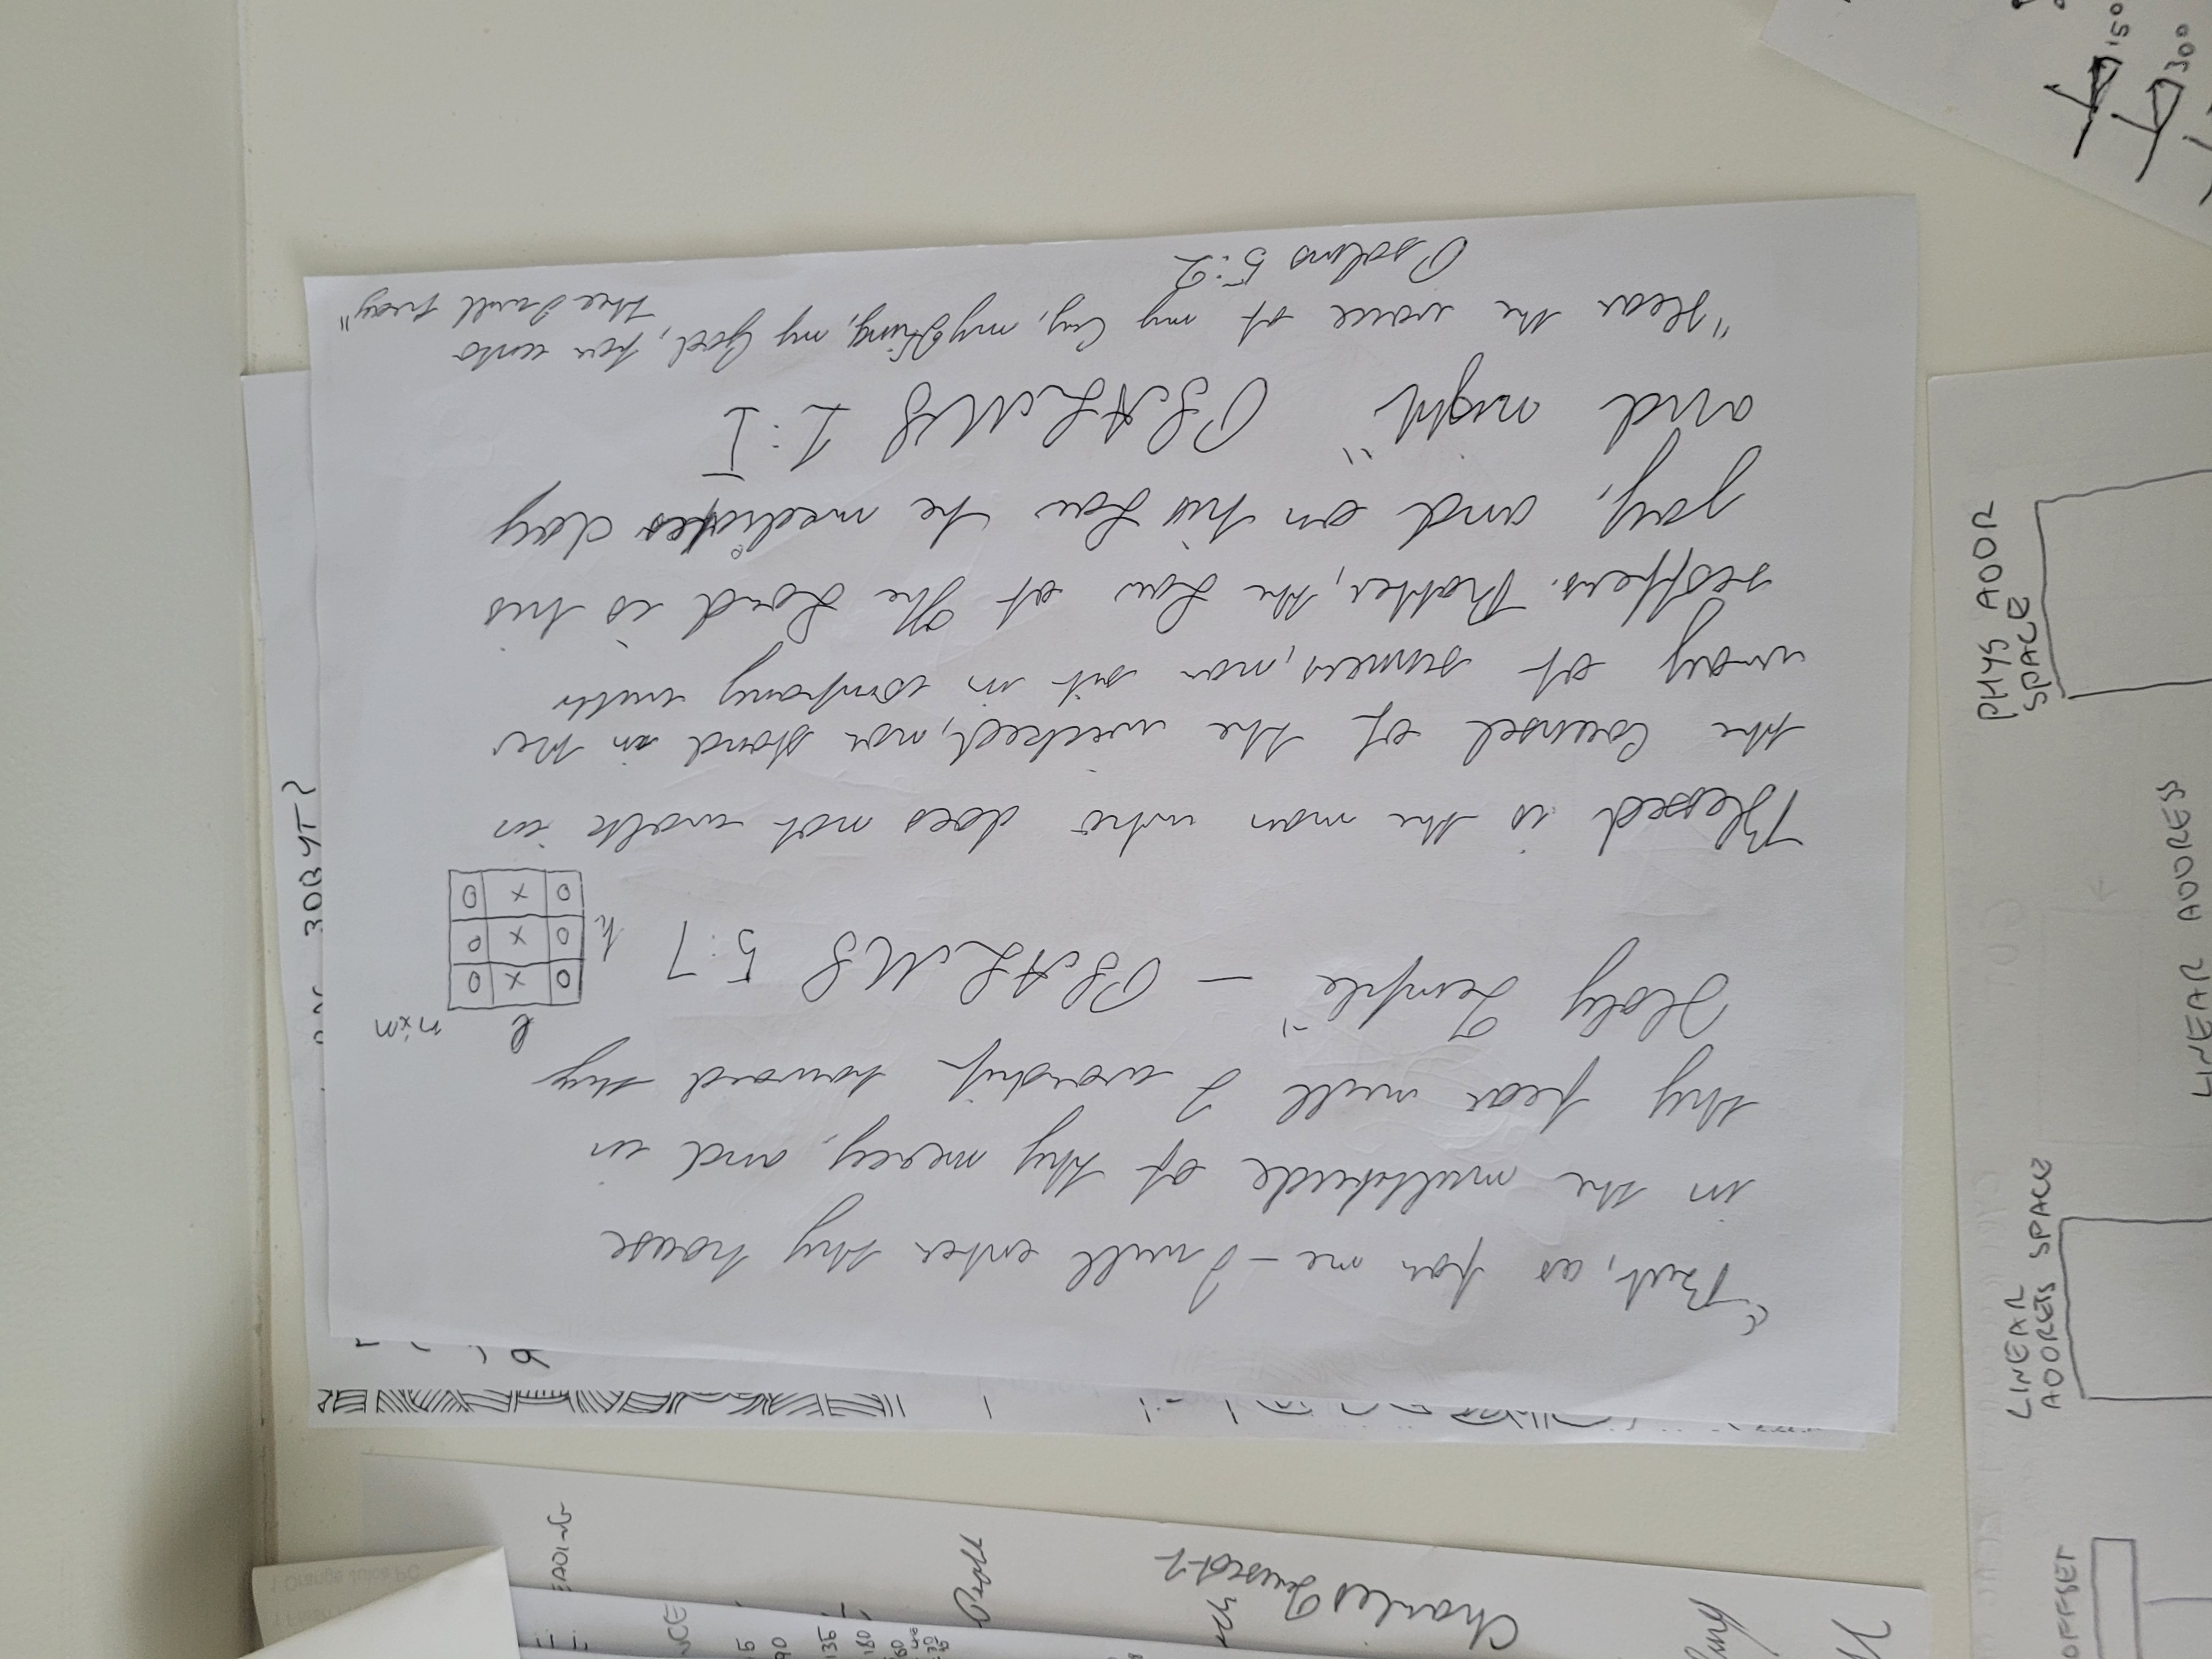 "But, as for me - I will enter thy house
in the multitude of thy mercy, and in
thy fear will I worship toward thy
Holy Temple" — PSALMS 5:7
n×m
l
h
O X O
O X O
O X O
Blessed is the man who does not walk in
the Counsel of the wicked, nor stand in the
way of sinners, nor sit in company with
scoffers. Rather, the Law of The Lord is his
joy, and on his Law he meditates day
and night" PSALMS I:I
"Hear the voice of my Cry, my King, my God, for unto
thee I will pray"
Psalms 5:2
ЗОВУТ?
EADING
135
180
Charles
OFFSET
LINEAR
ADDRETS SPACE
PHYS ADDR
SPACE
LINEAR ADDRESS
150
300